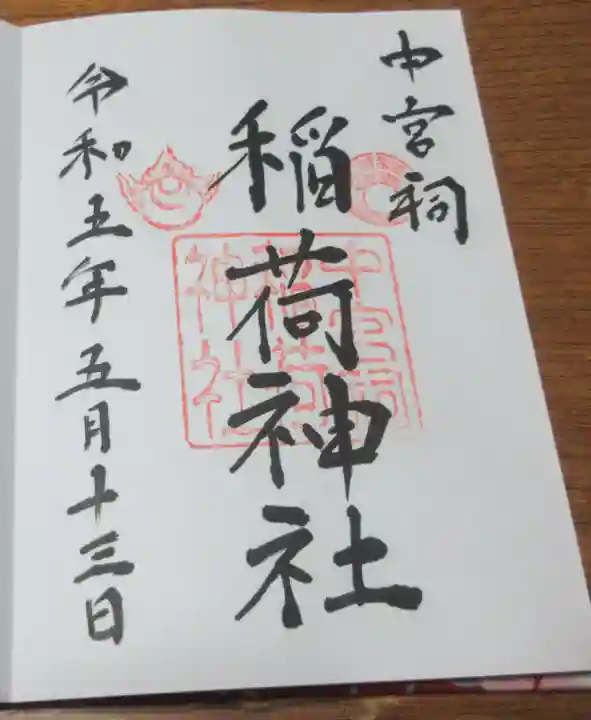 中宮祠
稲荷神社
中宮祠
稲荷
神社
令和五年五月十三日